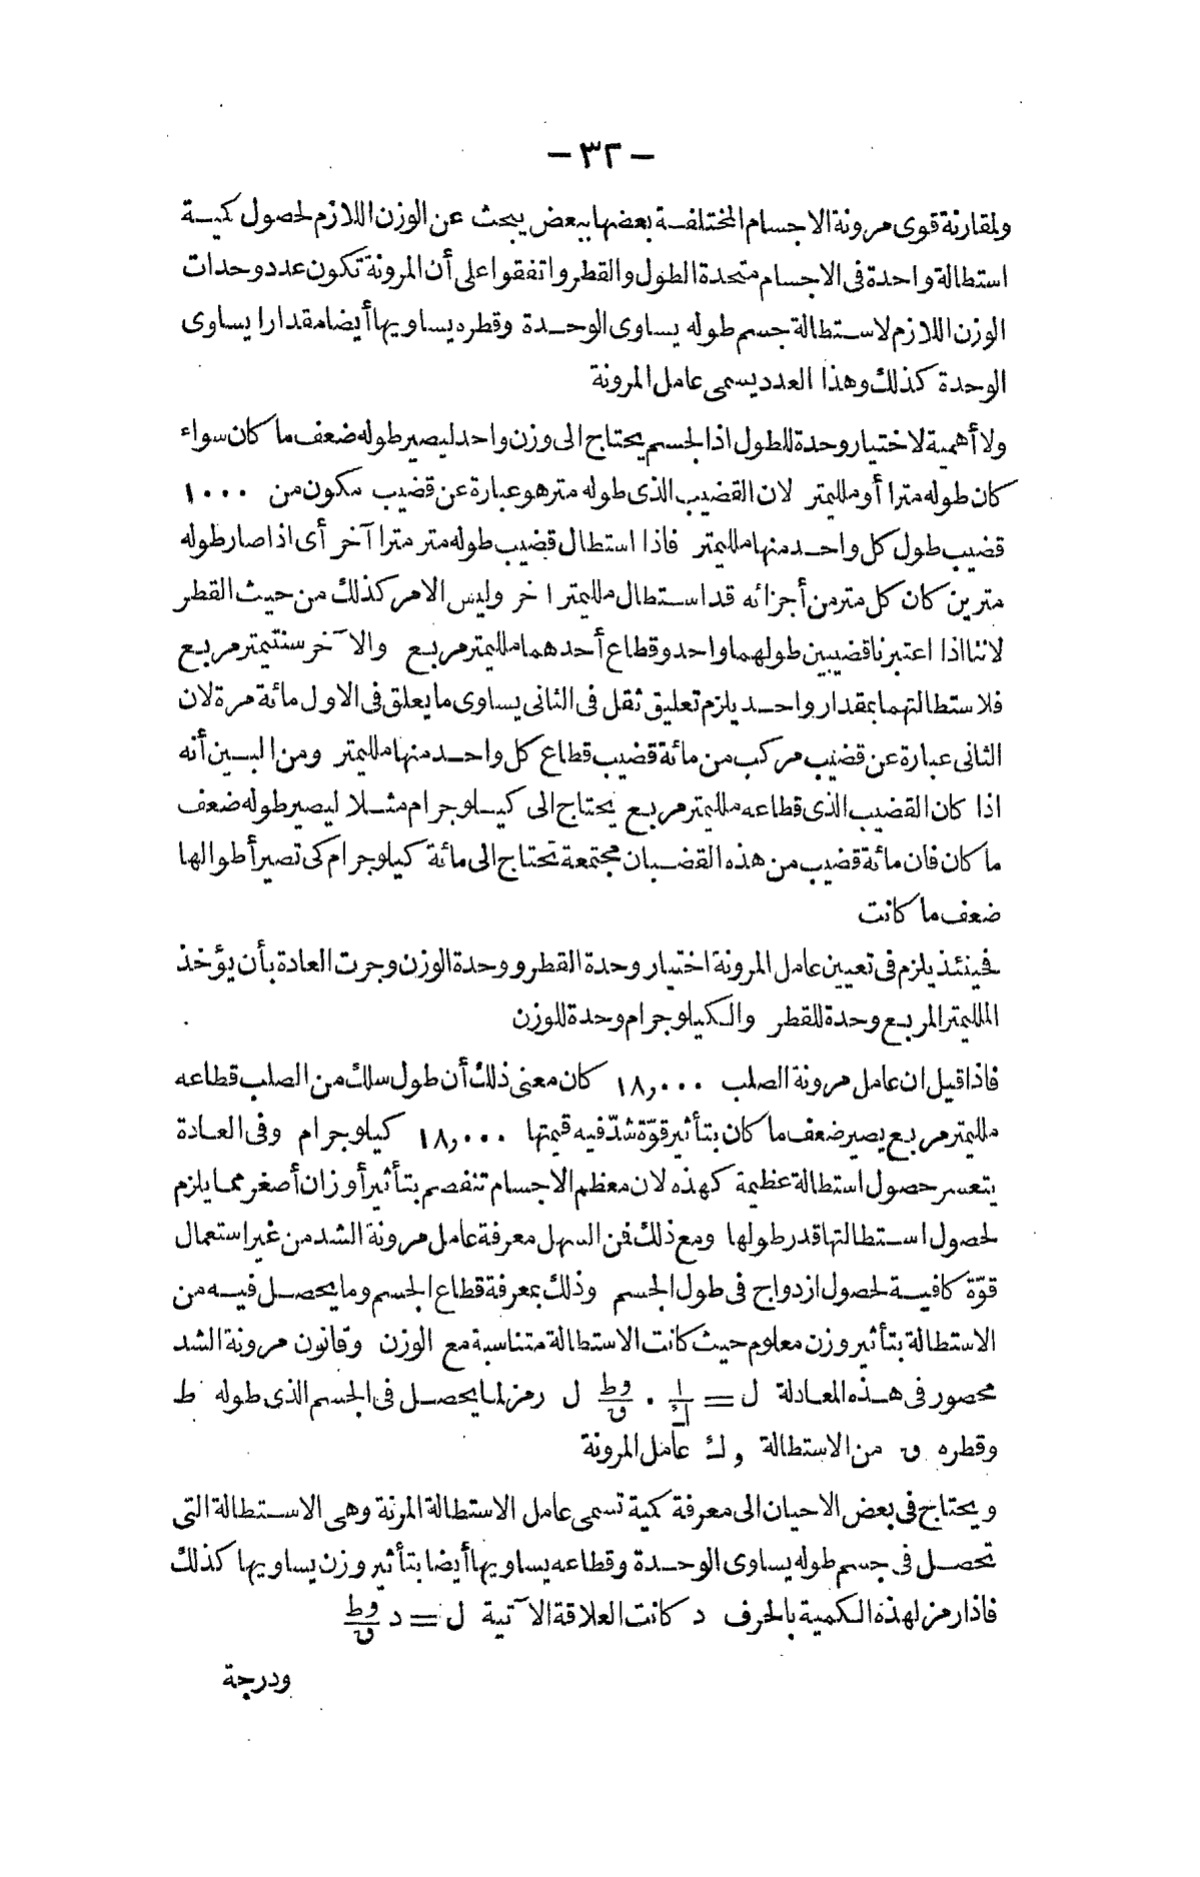 — ٣٢ —
ولمقارنة قوى مرونة الاجسام المختلفة بعضها ببعض يبحث عن الوزن اللازم لحصول كمية
استطالة واحدة فى الاجسام متحدة الطول والقطر واتفقوا على أن المرونة تكون عدد وحدات
الوزن اللازم لاستطالة جسم طوله يساوى الوحدة وقطره يساويها أيضا مقدارا يساوى
الوحدة كذلك وهذا العدد يسمى عامل المرونة
ولا أهمية لاختيار وحدة للطول اذ الجسم يحتاج الى وزن واحد ليصير طوله ضعف ما كان سواء
كان طوله مترا أو ملليمتر لان القضيب الذى طوله متر هو عبارة عن قضيب مكون من ١٠٠٠
قضيب طول كل واحد منها ملليمتر فاذا استطال قضيب طوله متر مترا آخر أى اذا صار طوله
مترين كان كل متر من أجزائه قد استطال ملليمترا خر وليس الامر كذلك من حيث القطر
لاننا اذا اعتبرنا قضيبين طولهما واحد وقطاع أحدهما ملليمتر مربع والآخر سنتيمتر مربع
فلاستطالتهما بمقدار واحد يلزم تعليق ثقل فى الثانى يساوى ما يعلق فى الاول مائة مرة لان
الثانى عبارة عن قضيب مركب من مائة قضيب قطاع كل واحد منها ملليمتر ومن البين أنه
اذا كان القضيب الذى قطاعه ملليمتر مربع يحتاج الى كيلوجرام مثلا ليصير طوله ضعف
ما كان فان مائة قضيب من هذه القضبان مجتمعة تحتاج الى مائة كيلوجرام كى تصير أطوالها
ضعف ما كانت
فحينئذ يلزم فى تعيين عامل المرونة اختيار وحدة القطر ووحدة الوزن وجرت العادة بأن يؤخذ
الملليمتر المربع وحدة للقطر والكيلوجرام وحدة للوزن
فاذا قيل ان عامل مرونة الصلب ١٨,٠٠٠ كان معنى ذلك أن طول سلك من الصلب قطاعه
ملليمتر مربع يصير ضعف ما كان بتأثير قوّة شدّ فيه قيمتها ١٨,٠٠٠ كيلوجرام وفى العادة
يتعسر حصول استطالة عظيمة كهذه لان معظم الاجسام تنفصم بتأثير أوزان أصغر مما يلزم
لحصول استطالتها قدر طولها ومع ذلك فن السهل معرفة عامل مرونة الشد من غير استعمال
قوّة كافية لحصول ازدواج فى طول الجسم وذلك بمعرفة قطاع الجسم وما يحصل فيه من
الاستطالة بتأثير وزن معلوم حيث كانت الاستطالة متناسبة مع الوزن وقانون مرونة الشد
محصور فى هذه المعادلة ل = ١/ك . وط/ق ل رمز لما يحصل فى الجسم الذى طوله ط
وقطره ق من الاستطالة و ك عامل المرونة
ويحتاج فى بعض الاحيان الى معرفة كمية تسمى عامل الاستطالة المرنة وهى الاستطالة التى
تحصل فى جسم طوله يساوى الوحدة وقطاعه يساويها أيضا بتأثير وزن يساويها كذلك
فاذا رمز لهذه الكمية بالحرف د كانت العلاقة الآتية ل = د وط/ق
ودرجة